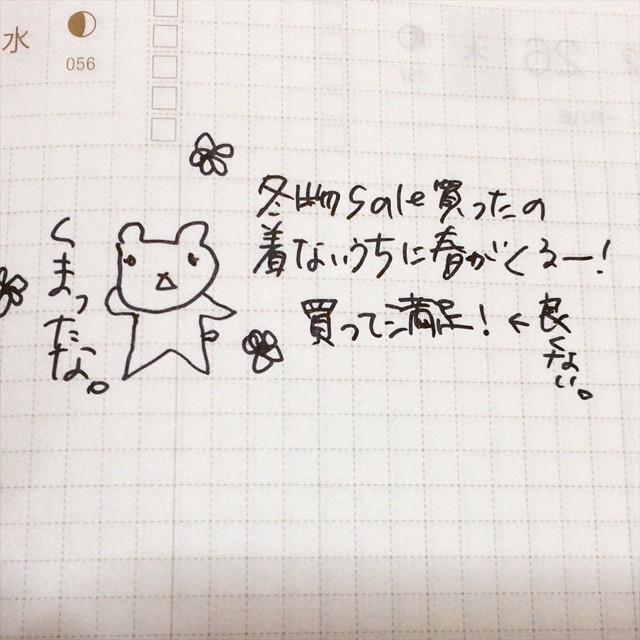 水
056
冬物sale買ったの
着ないうちに春がくるー!
買って満足!←良くない。
くまったな。
26
木